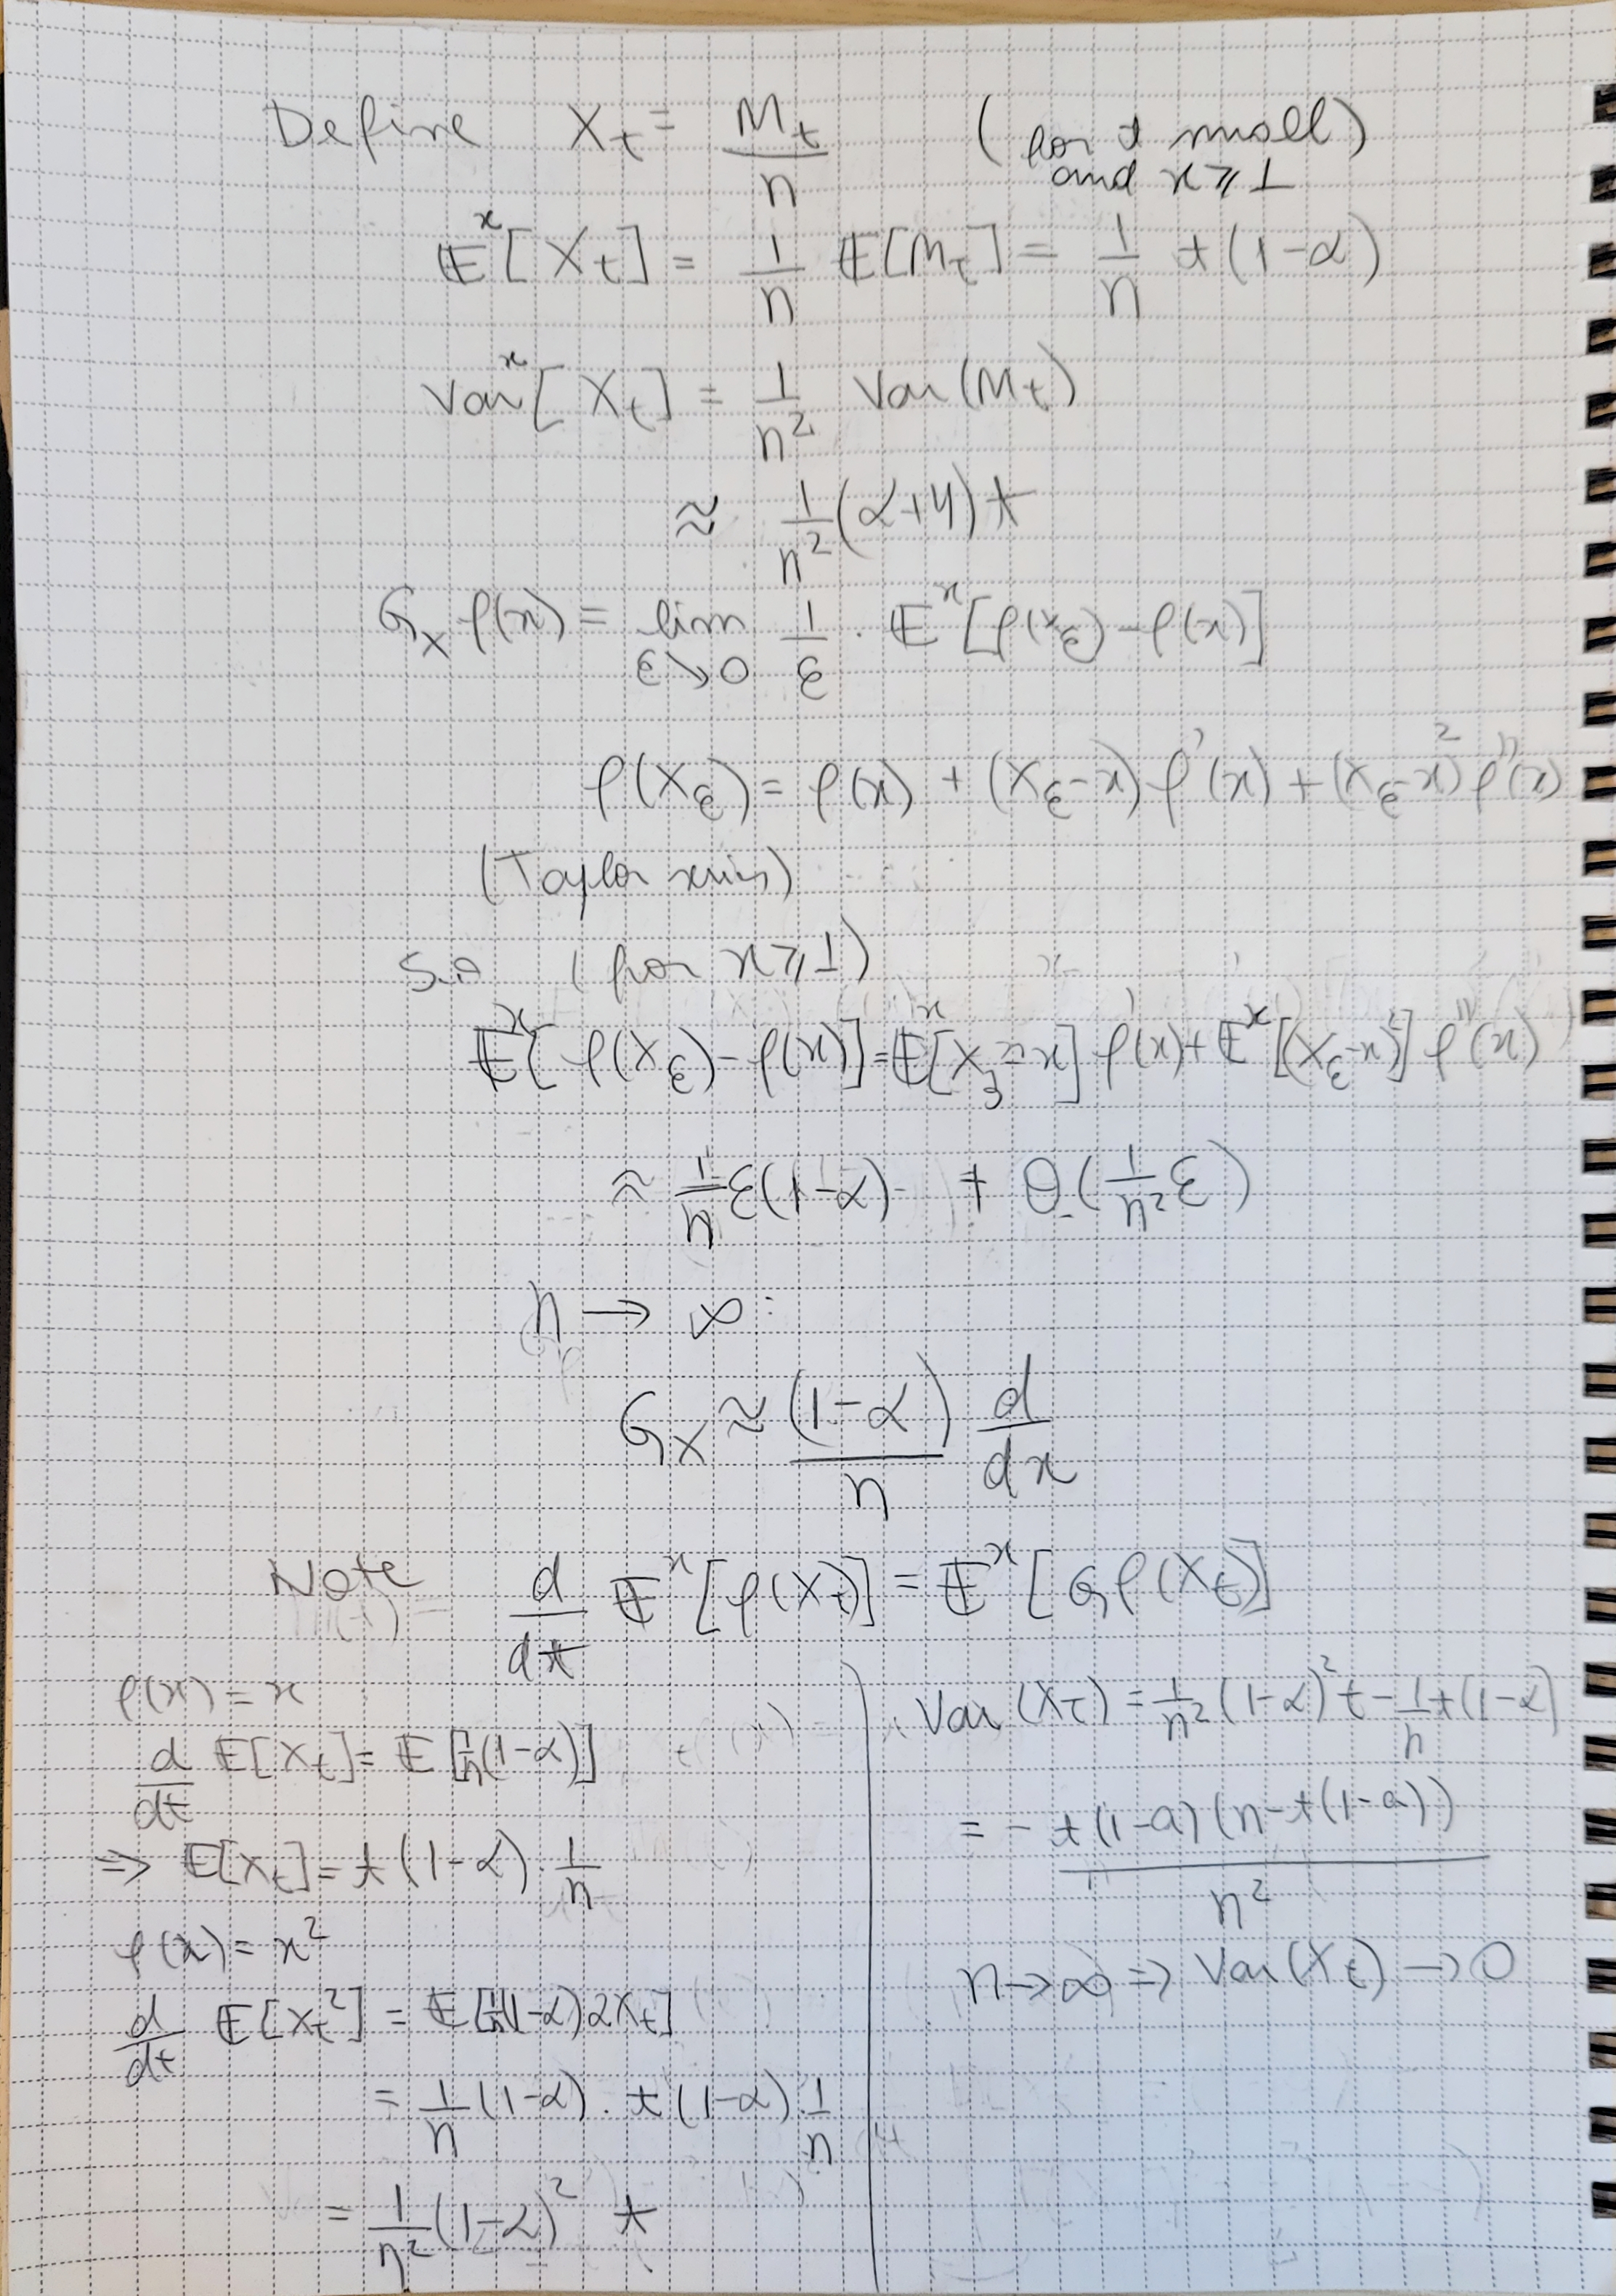 Define X_t = M_t / n (for t small and x ⩾ 1)
𝔼^x[X_t] = 1/n 𝔼[M_t] = 1/n t(1-α)
Var^x[X_t] = 1/n² Var(M_t)
≈ 1/n² (α+4) t
G_X f(x) = lim_{ε↘0} 1/ε · 𝔼^x[f(X_ε) - f(x)]
f(X_ε) = f(x) + (X_ε - x) f'(x) + (X_ε - x)² f''(x)
(Taylor series)
So (for x ⩾ 1)
𝔼^x[f(X_ε) - f(x)] = 𝔼^x[X_ε - x] f'(x) + 𝔼^x[(X_ε - x)²] f''(x)
≈ 1/n ε(1-α) + θ(1/n² ε)
n → ∞:
G_X ≈ (1-α)/n d/dx
Note d/dt 𝔼^x[f(X_t)] = 𝔼^x[G f(X_t)]
f(x) = x
d/dt 𝔼[X_t] = 𝔼[1/n (1-α)]
⇒ 𝔼[X_t] = t(1-α) · 1/n
f(x) = x²
d/dt 𝔼[X_t²] = 𝔼[1/n (1-α) 2X_t]
= 1/n (1-α) · t(1-α) 1/n
= 1/n² (1-α)² t
Var(X_t) = 1/n² (1-α)² t - 1/n t(1-α)
= - t(1-a)(n - t(1-a)) / n²
n → ∞ ⇒ Var(X_t) → 0